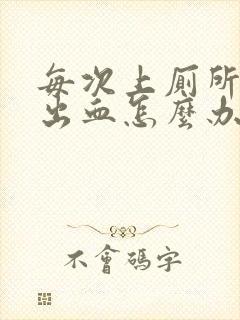 每次上厕所
出血怎麼办
不會碼字